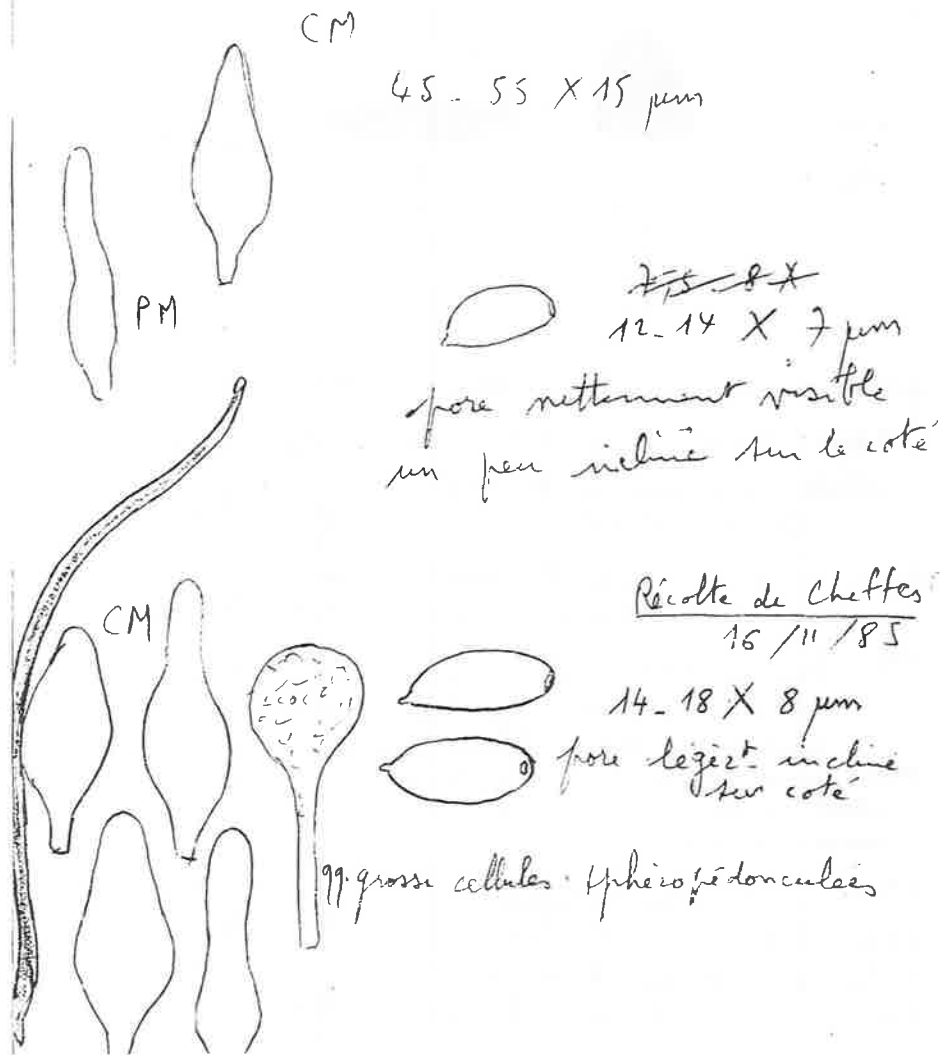 CM
45 - 55 X 15 µm
PM
7,5 - 8 X
12 - 14 X 7 µm
pore nettement visible
un peu incliné sur le coté
CM
Récolte de Cheffes
16 / 11 / 85
14 - 18 X 8 µm
pore légèrt incliné
sur coté
qq. grosse cellules sphéropédonculées